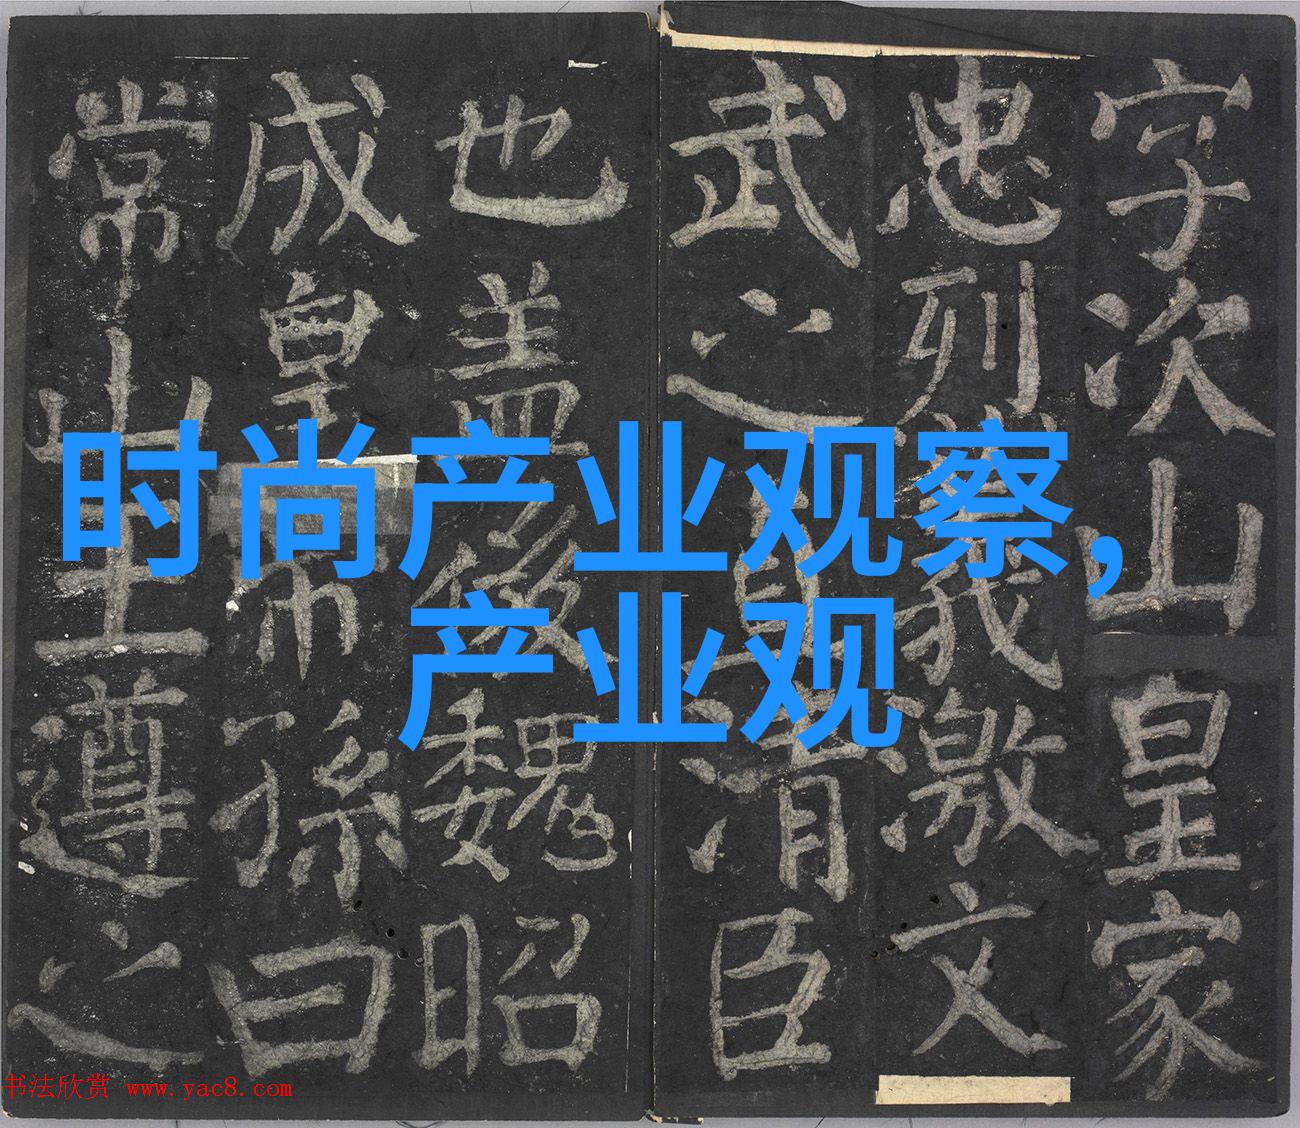 字次山皇家
忠列義激文
武之直清臣
也盖後魏昭
成皇帝孫曰
常山王遵之
时尚产业观察,
产业观
书法欣赏 www.yac8.com